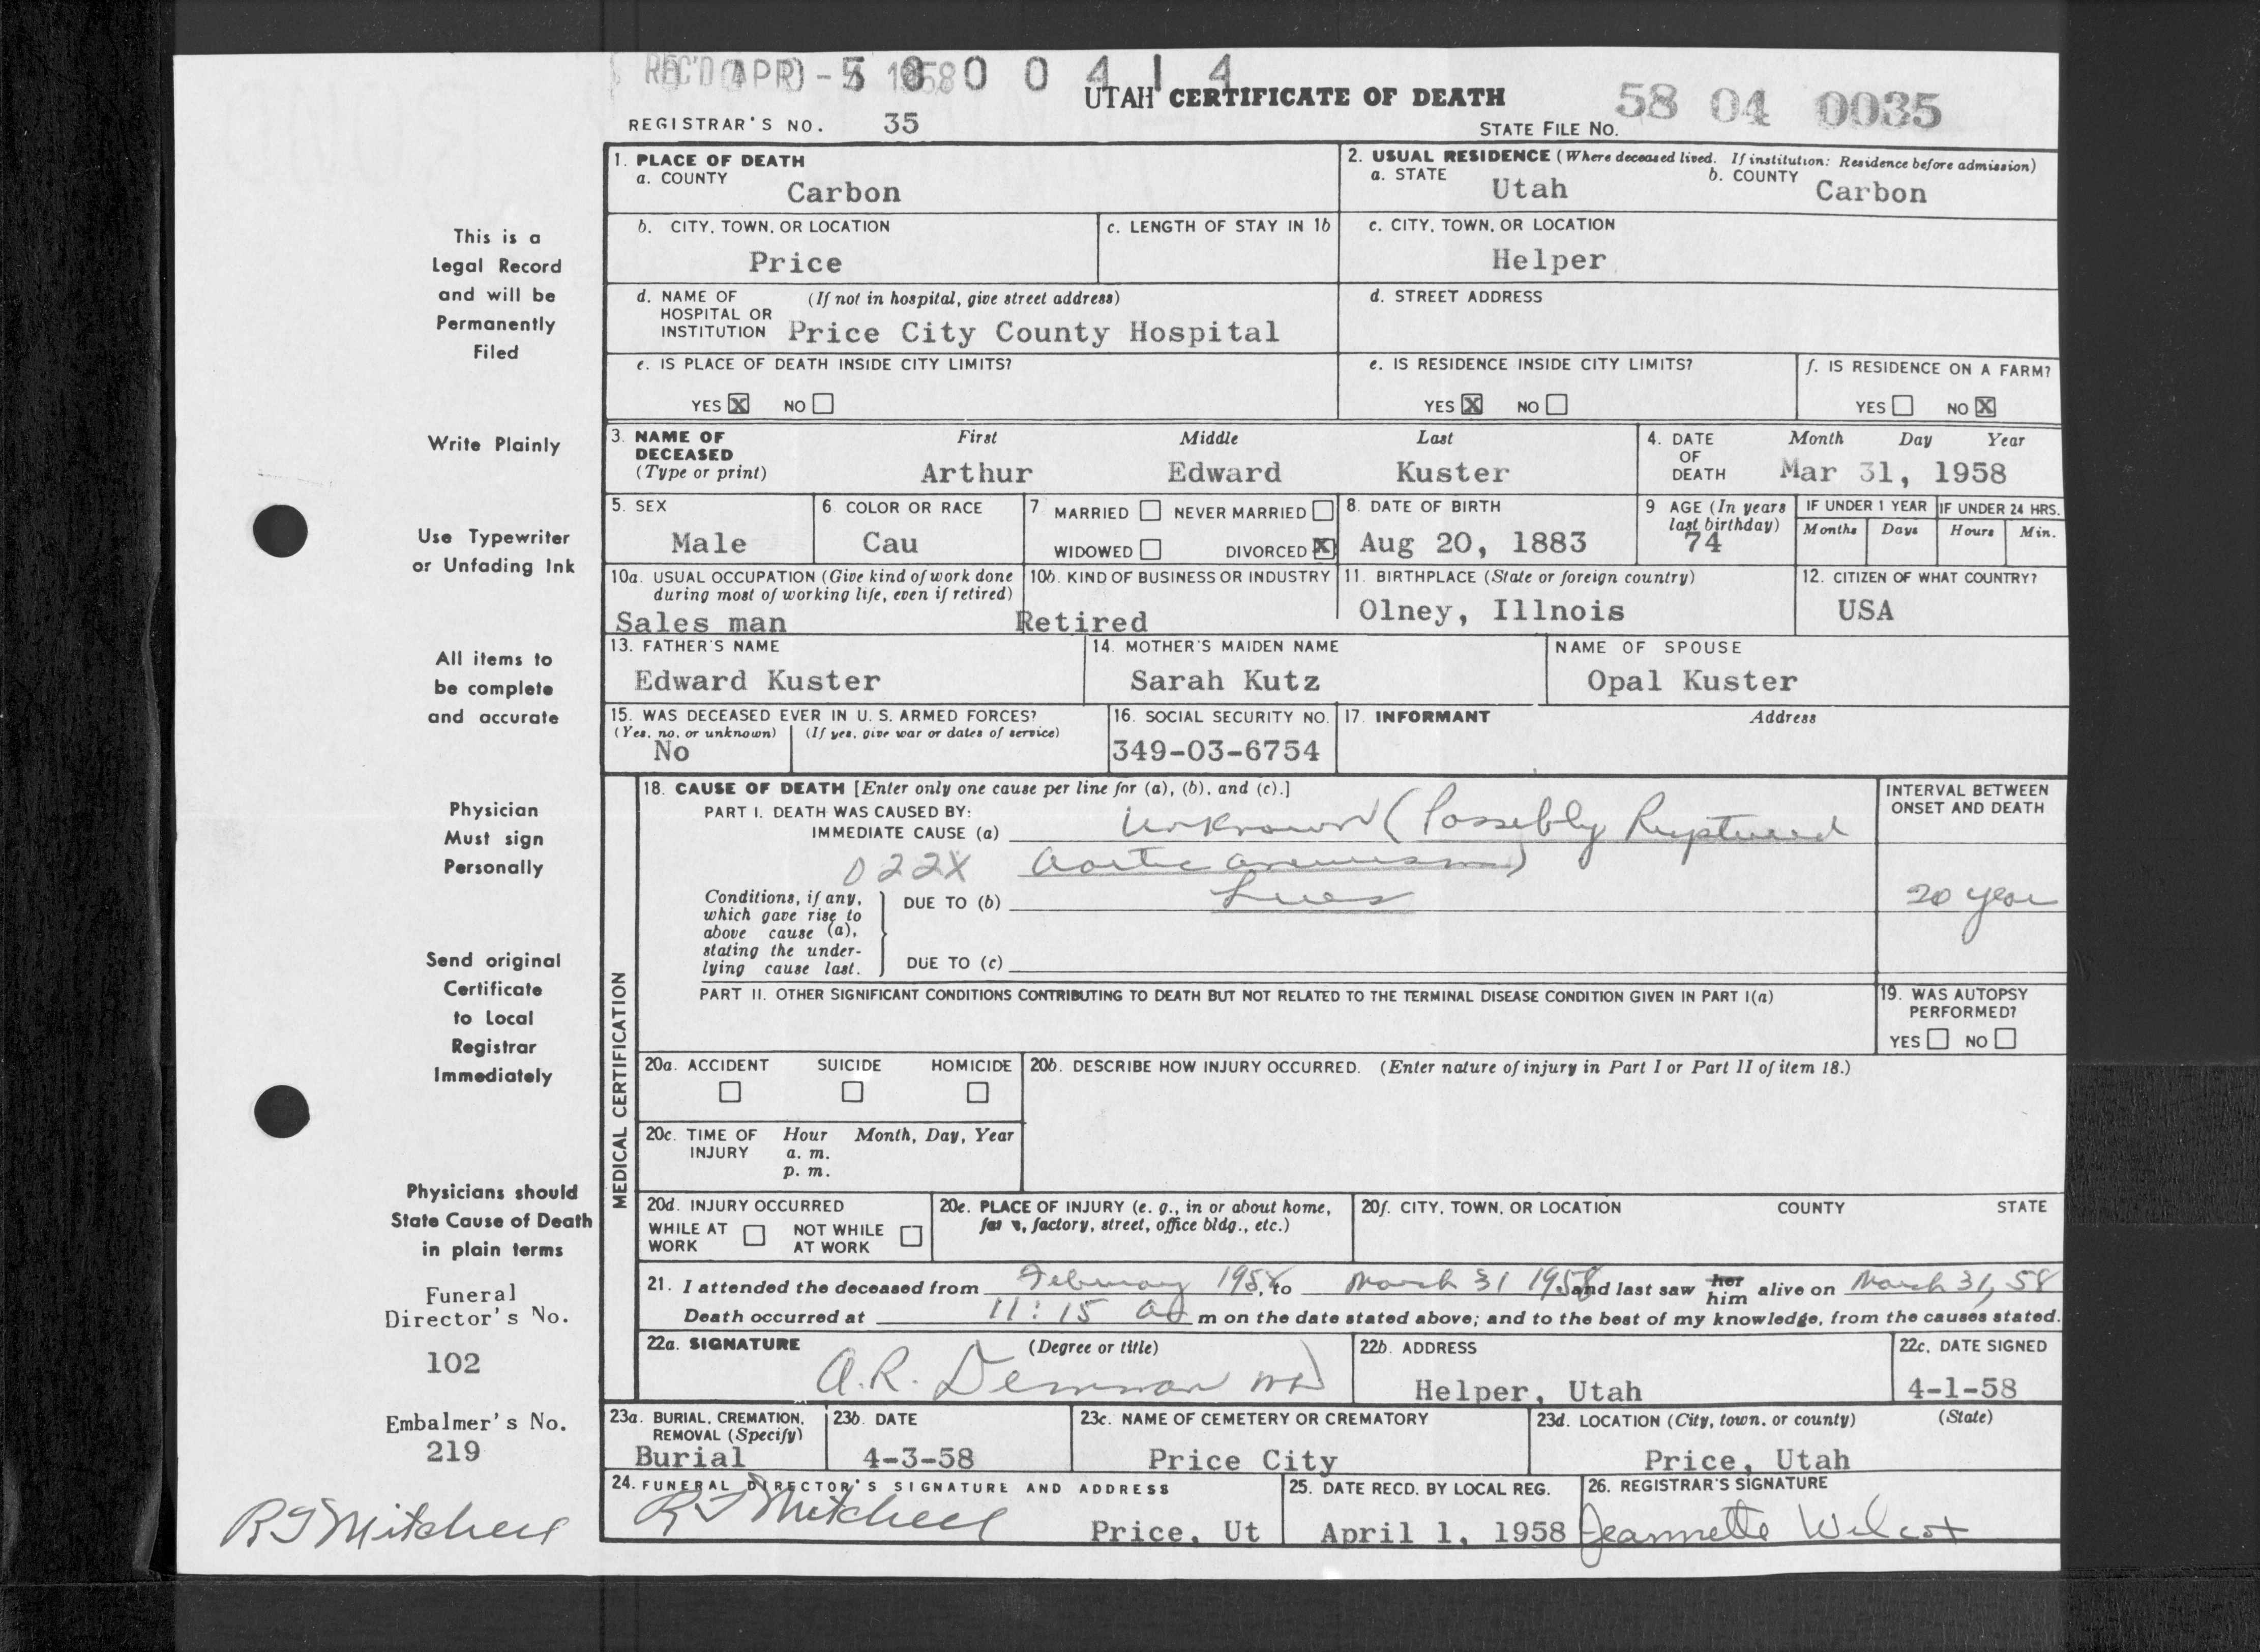 REC'D APR 1958 5 8 0 0 4 1 4
UTAH CERTIFICATE OF DEATH
58 04 0035
REGISTRAR'S NO. 35
STATE FILE NO.
1. PLACE OF DEATH
a. COUNTY Carbon
2. USUAL RESIDENCE (Where deceased lived. If institution: Residence before admission)
a. STATE Utah b. COUNTY Carbon
b. CITY, TOWN, OR LOCATION Price
c. LENGTH OF STAY IN 1b
c. CITY, TOWN, OR LOCATION Helper
d. NAME OF HOSPITAL OR INSTITUTION (If not in hospital, give street address)
Price City County Hospital
d. STREET ADDRESS
e. IS PLACE OF DEATH INSIDE CITY LIMITS?
YES X NO
e. IS RESIDENCE INSIDE CITY LIMITS?
YES X NO
f. IS RESIDENCE ON A FARM?
YES NO X
3. NAME OF DECEASED (Type or print)
First Middle Last
Arthur Edward Kuster
4. DATE OF DEATH Month Day Year
Mar 31, 1958
5. SEX
Male
6 COLOR OR RACE
Cau
7 MARRIED NEVER MARRIED
WIDOWED DIVORCED X
8. DATE OF BIRTH
Aug 20, 1883
9 AGE (In years last birthday)
74
IF UNDER 1 YEAR
Months Days
IF UNDER 24 HRS.
Hours Min.
10a. USUAL OCCUPATION (Give kind of work done during most of working life, even if retired)
Sales man
10b. KIND OF BUSINESS OR INDUSTRY
Retired
11. BIRTHPLACE (State or foreign country)
Olney, Illnois
12. CITIZEN OF WHAT COUNTRY?
USA
13. FATHER'S NAME
Edward Kuster
14. MOTHER'S MAIDEN NAME
Sarah Kutz
NAME OF SPOUSE
Opal Kuster
15. WAS DECEASED EVER IN U. S. ARMED FORCES?
(Yes, no, or unknown) (If yes, give war or dates of service)
No
16. SOCIAL SECURITY NO.
349-03-6754
17. INFORMANT Address
MEDICAL CERTIFICATION
18. CAUSE OF DEATH [Enter only one cause per line for (a), (b), and (c).]
PART I. DEATH WAS CAUSED BY:
IMMEDIATE CAUSE (a) Unknown (Possibly Ruptured
022X aortic aneurism)
Conditions, if any, which gave rise to above cause (a), stating the underlying cause last.
DUE TO (b) Lues
DUE TO (c)
INTERVAL BETWEEN ONSET AND DEATH
20 year
PART II. OTHER SIGNIFICANT CONDITIONS CONTRIBUTING TO DEATH BUT NOT RELATED TO THE TERMINAL DISEASE CONDITION GIVEN IN PART I(a)
19. WAS AUTOPSY PERFORMED?
YES NO
20a. ACCIDENT SUICIDE HOMICIDE
20b. DESCRIBE HOW INJURY OCCURRED. (Enter nature of injury in Part I or Part II of item 18.)
20c. TIME OF INJURY Hour Month, Day, Year
a. m.
p. m.
20d. INJURY OCCURRED
WHILE AT WORK NOT WHILE AT WORK
20e. PLACE OF INJURY (e. g., in or about home, factory, street, office bldg., etc.)
20f. CITY, TOWN, OR LOCATION COUNTY STATE
21. I attended the deceased from February 1958, to March 31 1958 and last saw her him alive on March 31, 58
Death occurred at 11:15 a m on the date stated above; and to the best of my knowledge, from the causes stated.
22a. SIGNATURE (Degree or title)
A.R. Demman MD
22b. ADDRESS
Helper, Utah
22c. DATE SIGNED
4-1-58
23a. BURIAL, CREMATION, REMOVAL (Specify)
Burial
23b. DATE
4-3-58
23c. NAME OF CEMETERY OR CREMATORY
Price City
23d. LOCATION (City, town, or county) (State)
Price, Utah
24. FUNERAL DIRECTOR'S SIGNATURE AND ADDRESS
R J Mitchell Price, Ut
25. DATE RECD. BY LOCAL REG.
April 1, 1958
26. REGISTRAR'S SIGNATURE
Jeannette Wilcox
This is a
Legal Record
and will be
Permanently
Filed
Write Plainly
Use Typewriter
or Unfading Ink
All items to
be complete
and accurate
Physician
Must sign
Personally
Send original
Certificate
to Local
Registrar
Immediately
Physicians should
State Cause of Death
in plain terms
Funeral
Director's No.
102
Embalmer's No.
219
R J Mitchell